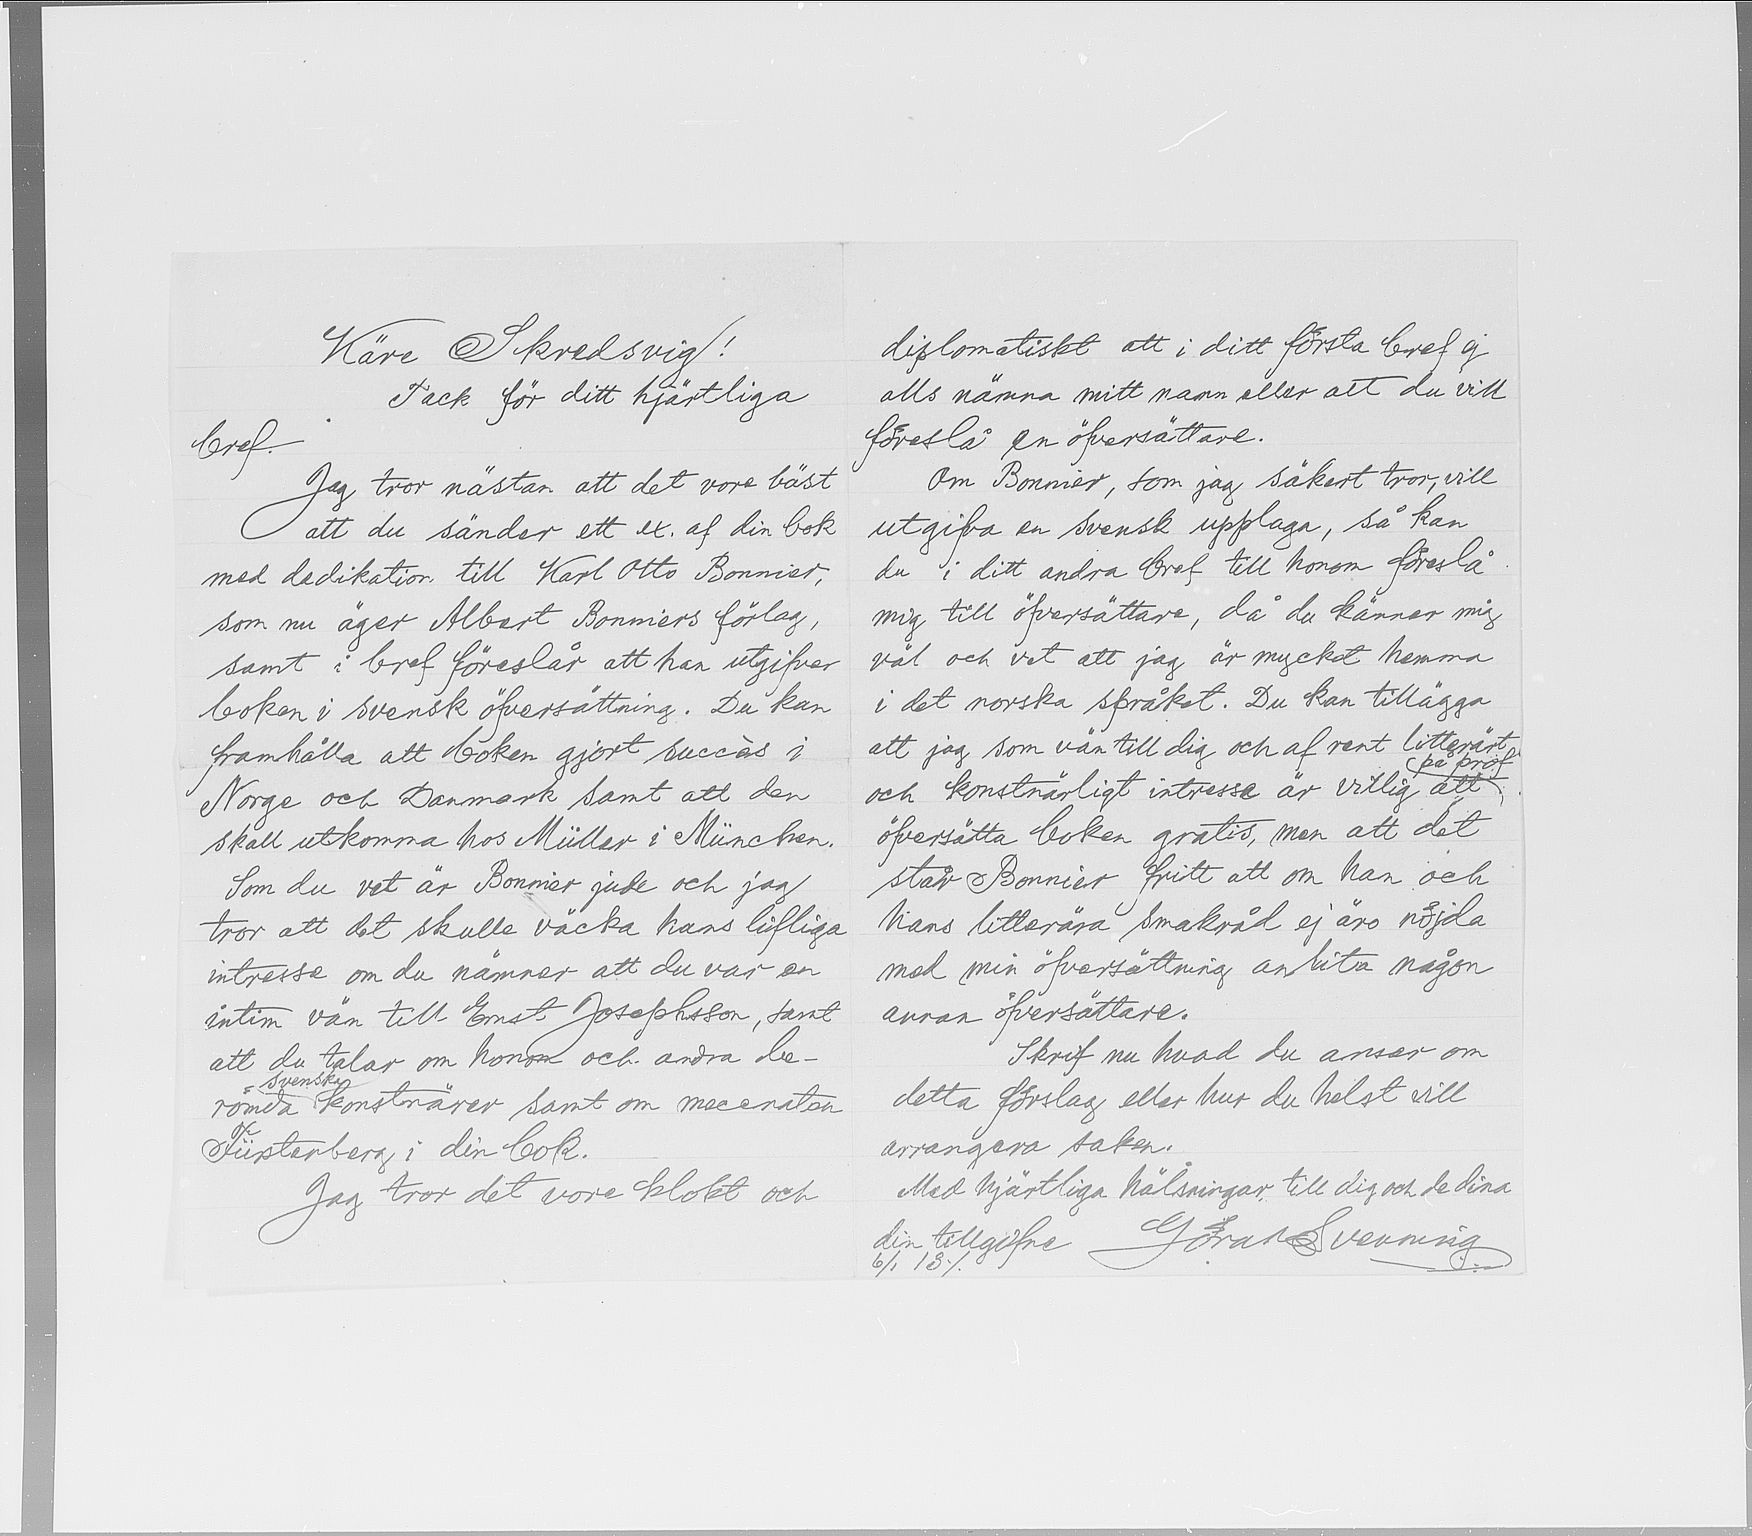 Käre Skredsvig!
Tack för ditt hjärtliga
bref.
Jag tror nästan att det vore bäst
att du sänder ett ex. af din bok
med dedikation till Karl Otto Bonnier,
som nu äger Albert Bonniers förlag,
samt i bref föreslår att han utgifver
boken i svensk öfversättning. Du kan
framhålla att boken gjort succès i
Norge och Danmark samt att den
skall utkomma hos Müller i München.
Som du vet är Bonnier jude och jag
tror att det skulle väcka hans lifliga
intresse om du nämner att du var en
intim vän till Ernst Josephsson, samt
att du talar om honom och andra be-
svenska
römda konstnärer samt om mecenaten
Fürstenberg i din bok.
Jag tror det vore klokt och
diplomatiskt att i ditt första bref ej
alls nämna mitt namn eller att du vill
föreslå en öfversättare.
Om Bonnier, som jag säkert tror, vill
utgifva en svensk upplaga, så kan
du i ditt andra bref till honom föreslå
mig till öfversättare, då du känner mig
väl och vet att jag är mycket hemma
i det norska språket. Du kan tillägga
att jag som vän till dig och af rent litterärt
på prof
och konstnärligt intresse är villig att
öfversätta boken gratis, men att det
står Bonnier fritt att om han och
hans litterära smakråd ej äro nöjda
med min öfversättning anlita någon
annan öfversättare.
Skrif nu hvad du anser om
detta förslag eller hur du helst vill
arrangera saken.
Med hjärtliga hälsningar till dig och de dina
din tillgifne Göran Svenning
6/1 13.